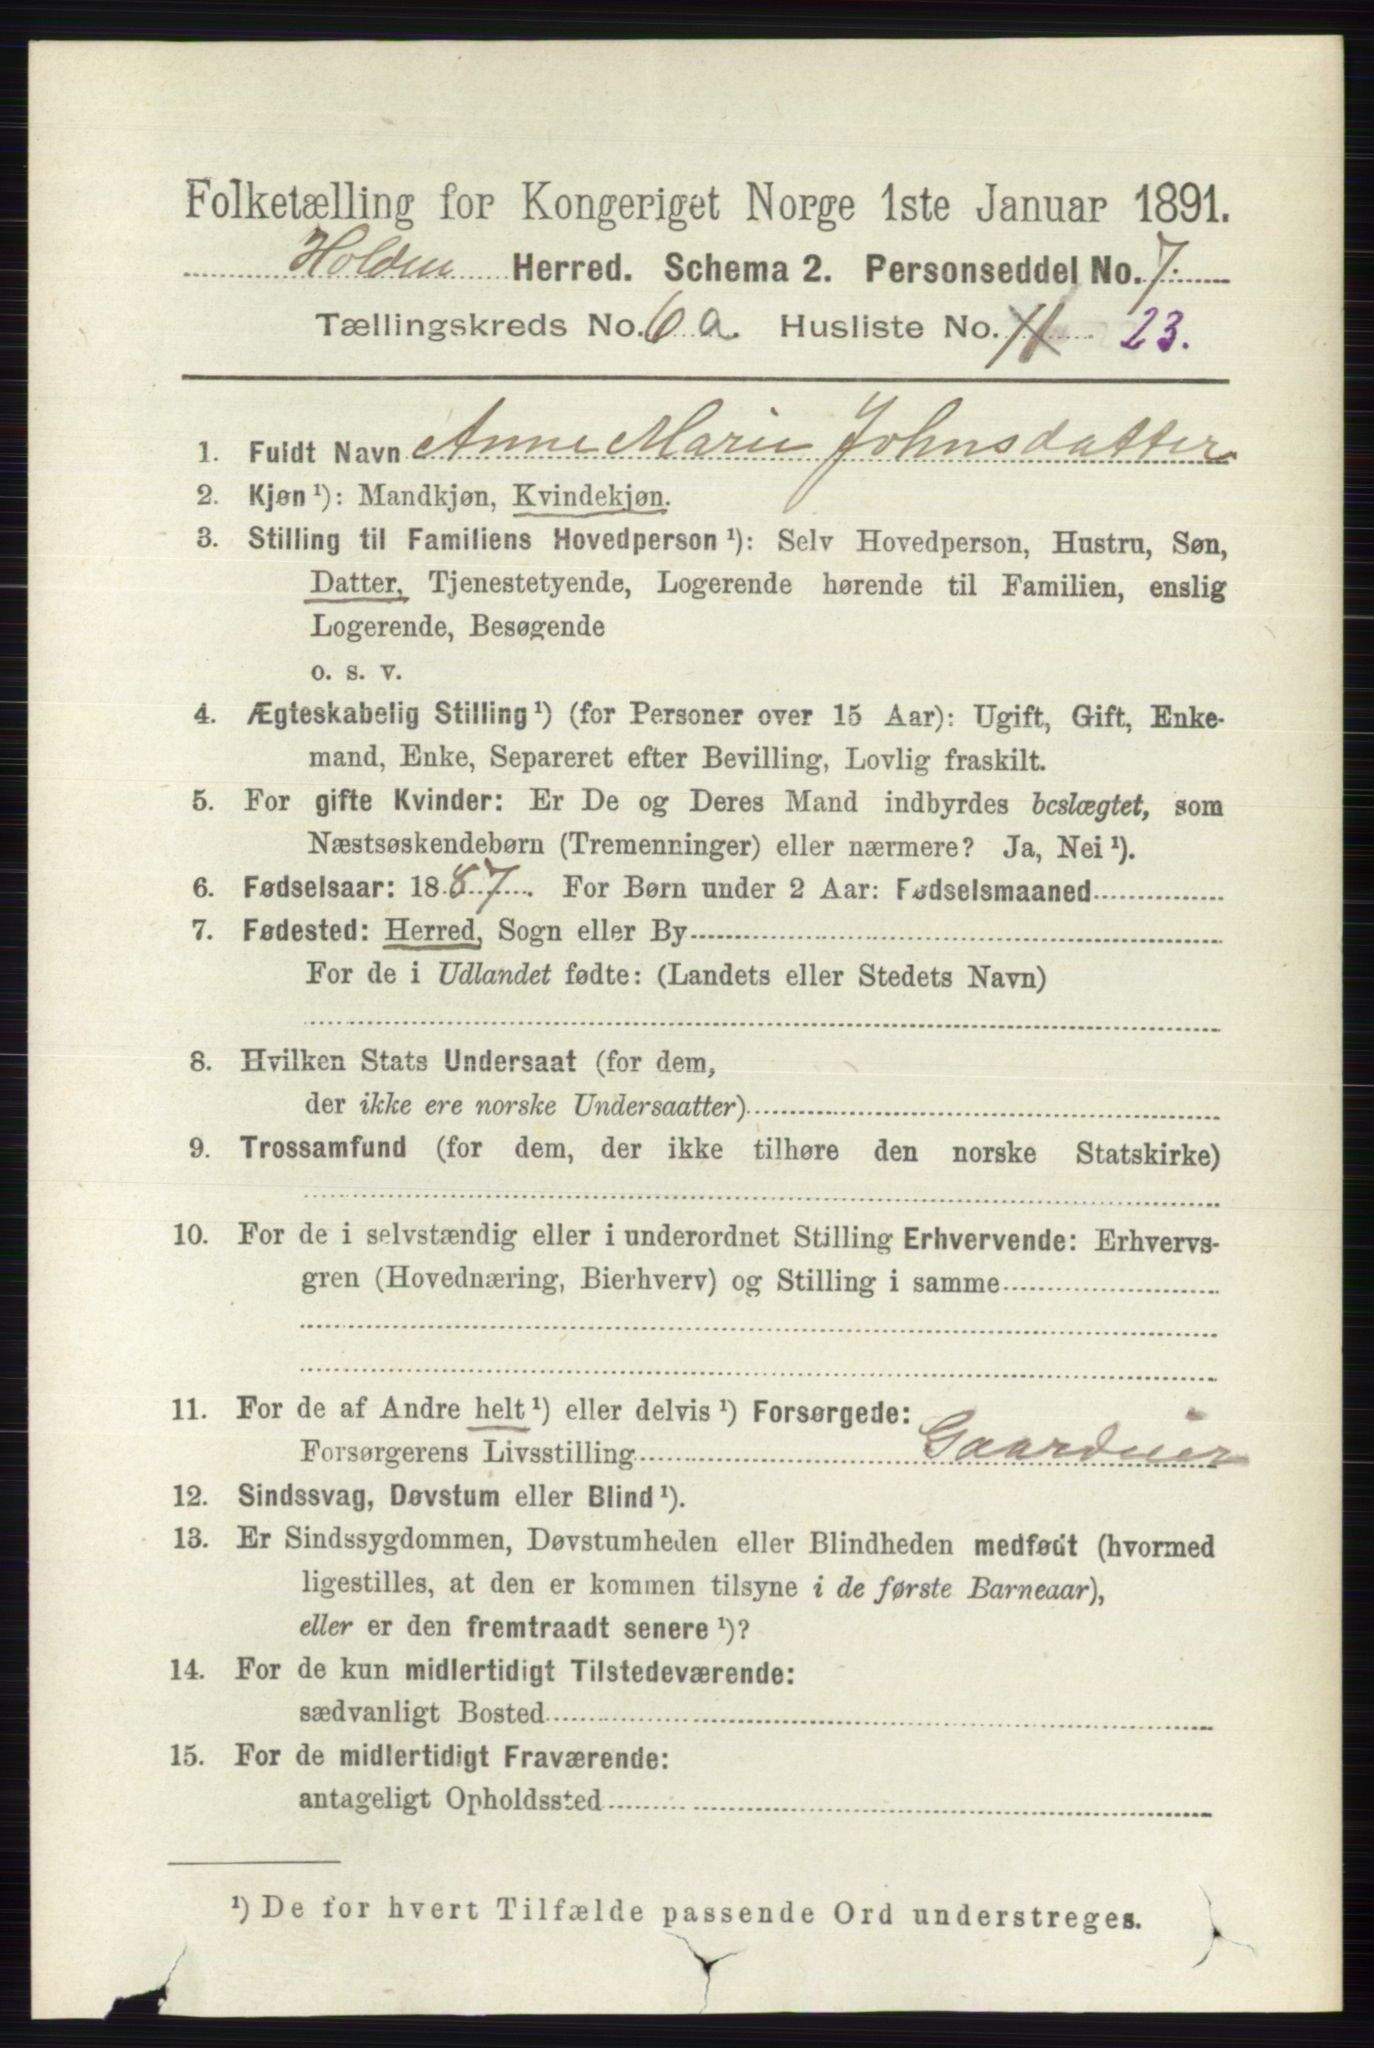 Folketælling for Kongeriget Norge 1ste Januar 1891.
Holden Herred. Schema 2. Personseddel No. 7.
Tællingskreds No. 6 a. Husliste No. 11 23.
1. Fuldt Navn Anne Marie Johnsdatter
2. Kjøn ¹): Mandkjøn, Kvindekjøn.
3. Stilling til Familiens Hovedperson ¹): Selv Hovedperson, Hustru, Søn,
Datter, Tjenestetyende, Logerende hørende til Familien, enslig
Logerende, Besøgende
o. s. v.
4. Ægteskabelig Stilling ¹) (for Personer over 15 Aar): Ugift, Gift, Enke-
mand, Enke, Separeret efter Bevilling, Lovlig fraskilt.
5. For gifte Kvinder: Er De og Deres Mand indbyrdes beslægtet, som
Næstsøskendebørn (Tremenninger) eller nærmere? Ja, Nei ¹).
6. Fødselsaar: 1887. For Børn under 2 Aar: Fødselsmaaned
7. Fødested: Herred, Sogn eller By
For de i Udlandet fødte: (Landets eller Stedets Navn)
8. Hvilken Stats Undersaat (for dem,
der ikke ere norske Undersaatter)
9. Trossamfund (for dem, der ikke tilhøre den norske Statskirke)
10. For de i selvstændig eller i underordnet Stilling Erhvervende: Erhvervs-
gren (Hovednæring, Bierhverv) og Stilling i samme
11. For de af Andre helt ¹) eller delvis ¹) Forsørgede:
Forsørgerens Livsstilling Gaardeier
12. Sindssvag, Døvstum eller Blind ¹).
13. Er Sindssygdommen, Døvstumheden eller Blindheden medfødt (hvormed
ligestilles, at den er kommen tilsyne i de første Barneaar),
eller er den fremtraadt senere ¹)?
14. For de kun midlertidigt Tilstedeværende:
sædvanligt Bosted
15. For de midlertidigt Fraværende:
antageligt Opholdssted
¹) De for hvert Tilfælde passende Ord understreges.